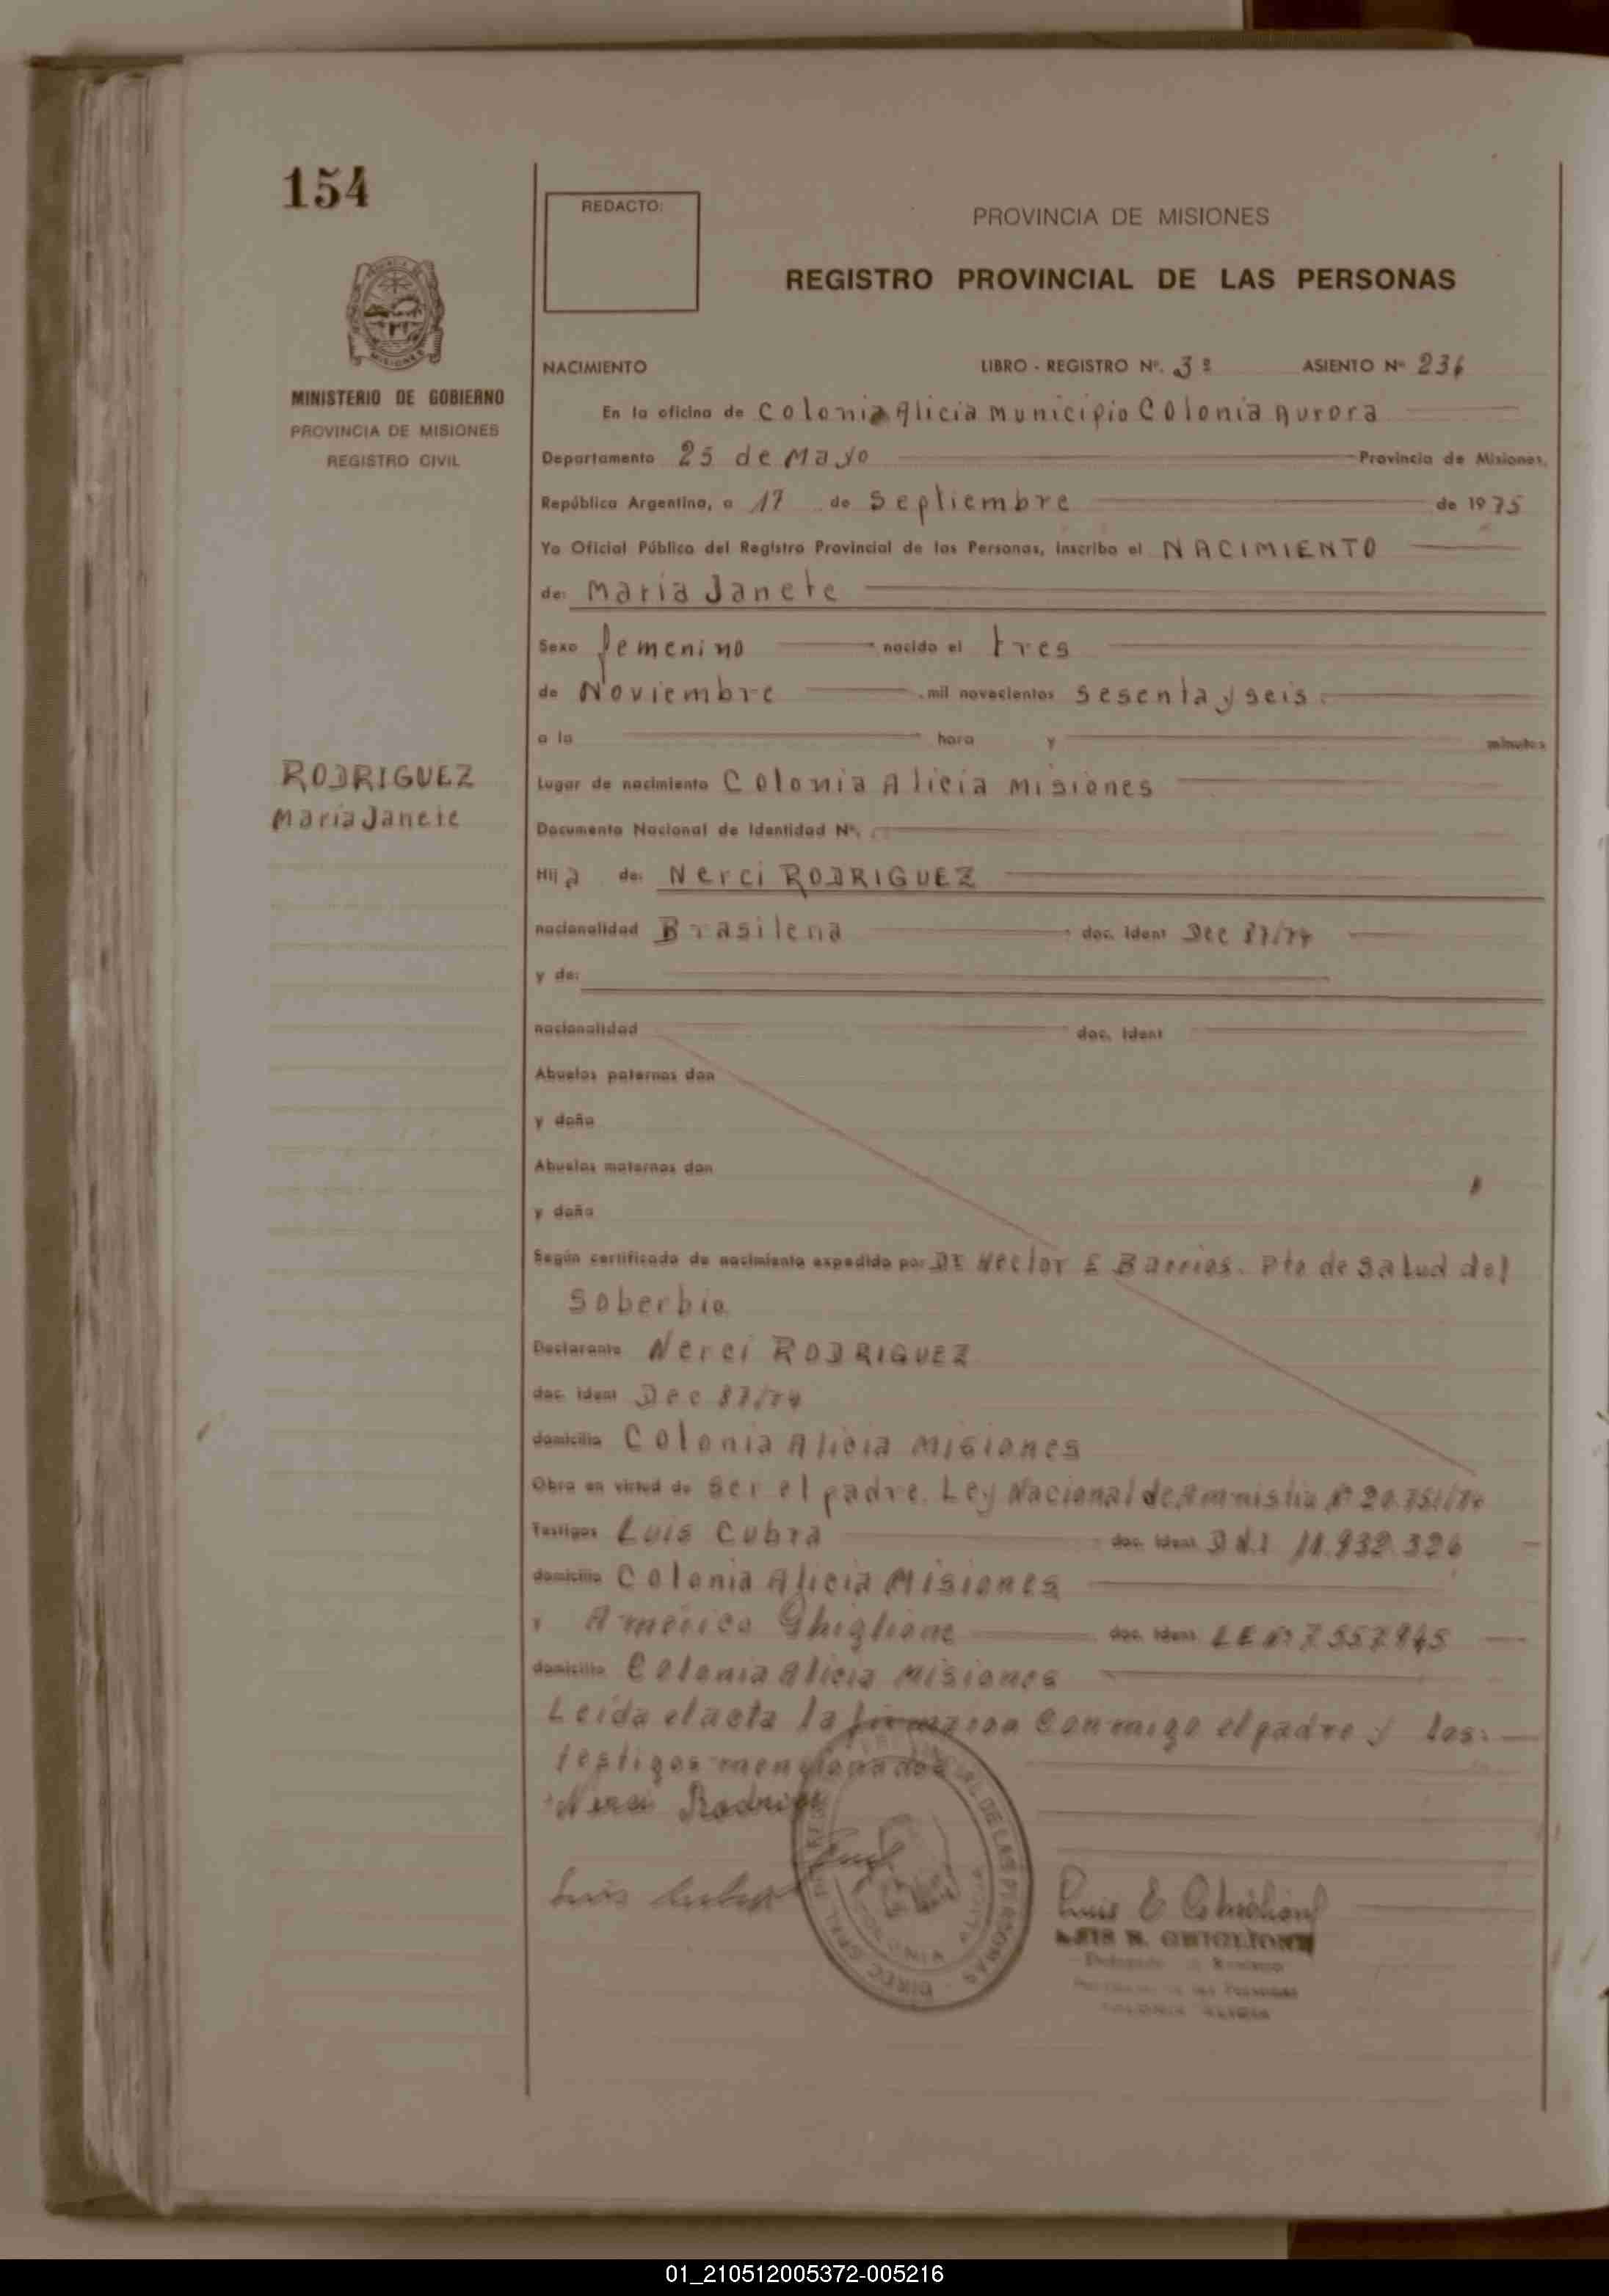 154
REDACTO:
PROVINCIA DE MISIONES
REGISTRO PROVINCIAL DE LAS PERSONAS
MINISTERIO DE GOBIERNO
PROVINCIA DE MISIONES
REGISTRO CIVIL
NACIMIENTO LIBRO - REGISTRO Nº. 3º ASIENTO Nº 236
En la oficina de Colonia Alicia Municipio Colonia Aurora
Departamento 25 de Mayo Provincia de Misiones,
República Argentina, a 17 de Septiembre de 1975
Yo Oficial Público del Registro Provincial de las Personas, inscribo el NACIMIENTO
de: Maria Janete
Sexo femenino nacido el tres
de Noviembre mil novecientos sesenta y seis
a la hora y minutos
RODRIGUEZ
Maria Janete
Lugar de nacimiento Colonia Alicia Misiones
Documento Nacional de Identidad Nº.
Hija de: Nerci RODRIGUEZ
nacionalidad Brasilena doc. Ident Dec 87/74
y de:
nacionalidad doc. Ident
Abuelos paternos don
y doña
Abuelos maternos don
y doña
Según certificado de nacimiento expedido por Dr Hector E Barrios. Pto de Salud del
Soberbio
Declarante Nerci RODRIGUEZ
doc. ident Dec 87/74
domicilio Colonia Alicia Misiones
Obra en virtud de ser el padre. Ley Nacional de Amnistia Nº 20.751/74
Testigos Luis Cubra doc. Ident D.N.I 11.832.326
domicilio Colonia Alicia Misiones
y Américo Ghiglione doc. Ident LE Nº 7557845
domicilio Colonia Alicia Misiones
Leida el acta la firman conmigo el padre y los
testigos mencionados
Nerci Rodrigu
Luis
Luis E Ghiglione
LUIS E. GHIGLIONE
COLONIA ALICIA
01_210512005372-005216